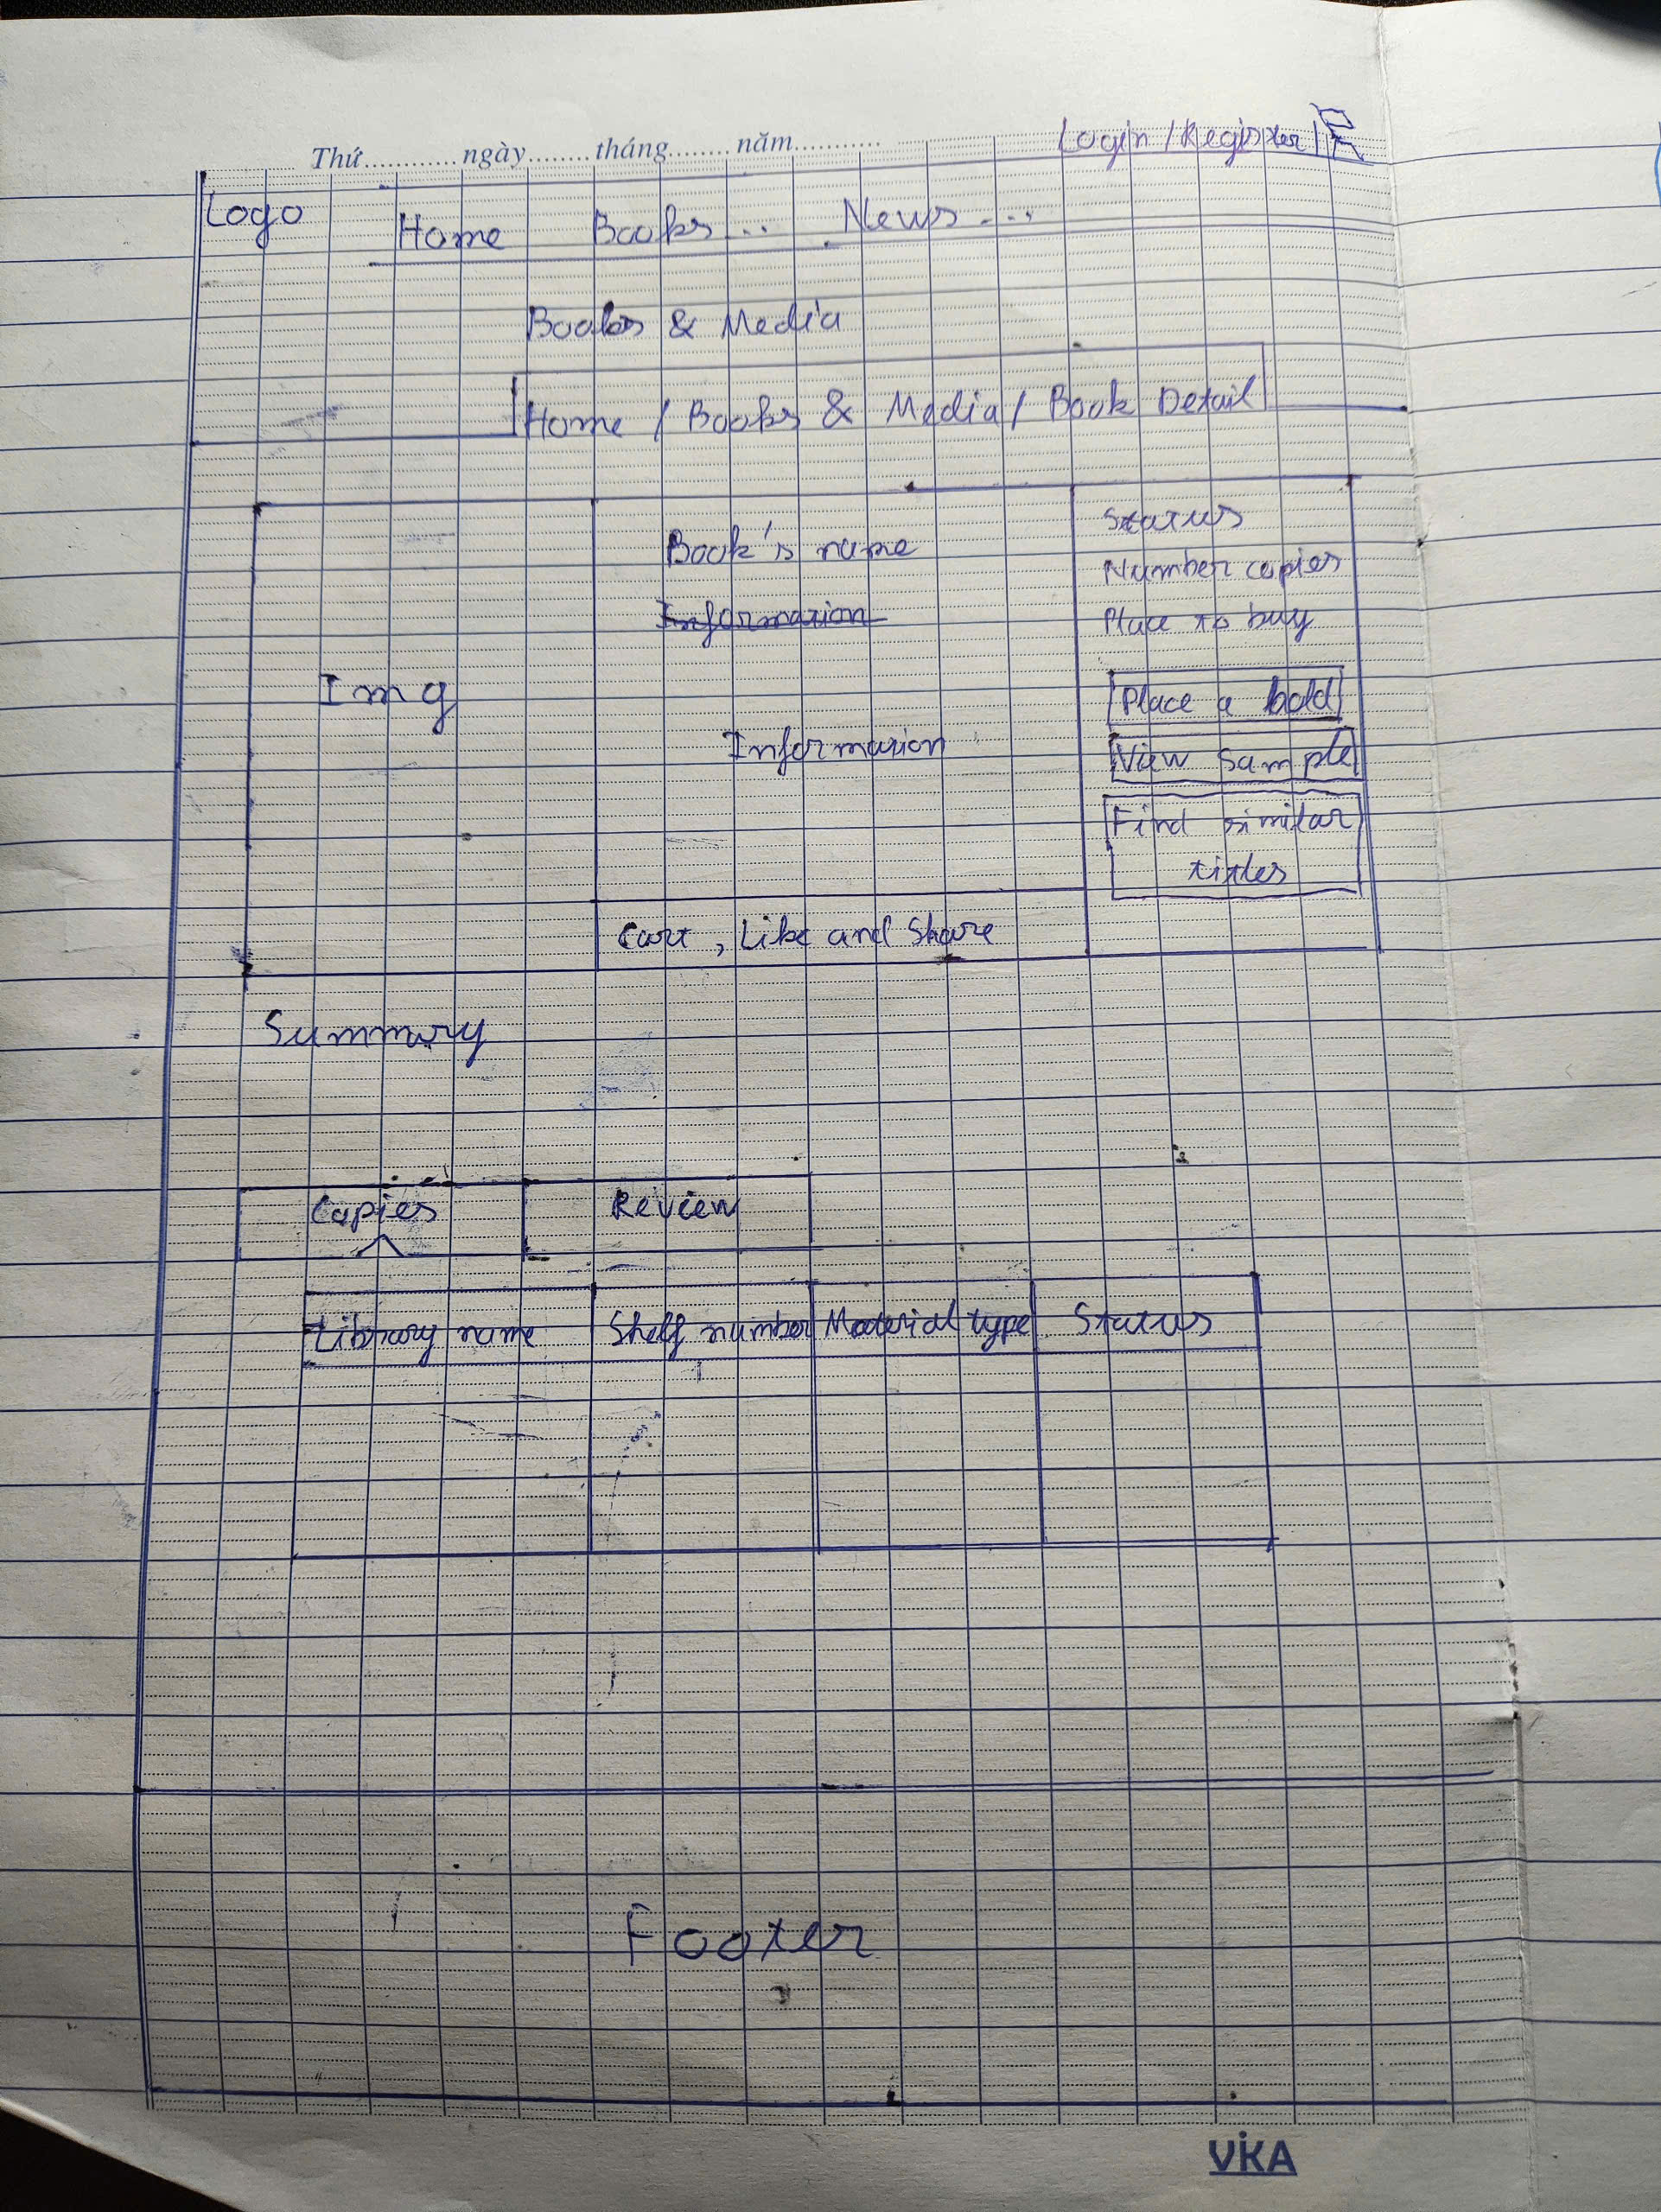 Thứ............ngày........tháng........năm...........
Login / Register /
Logo Home Books... News...
Books & Media
Home / Books & Media / Book Detail
Img
Book's name
Information
Information
Cart, Like and Share
Status
Number copies
Place to buy
Place a hold
View sample
Find similar
titles
Summary
Copies Review
Library name Shelf number Material type Status
Footer
VIKA